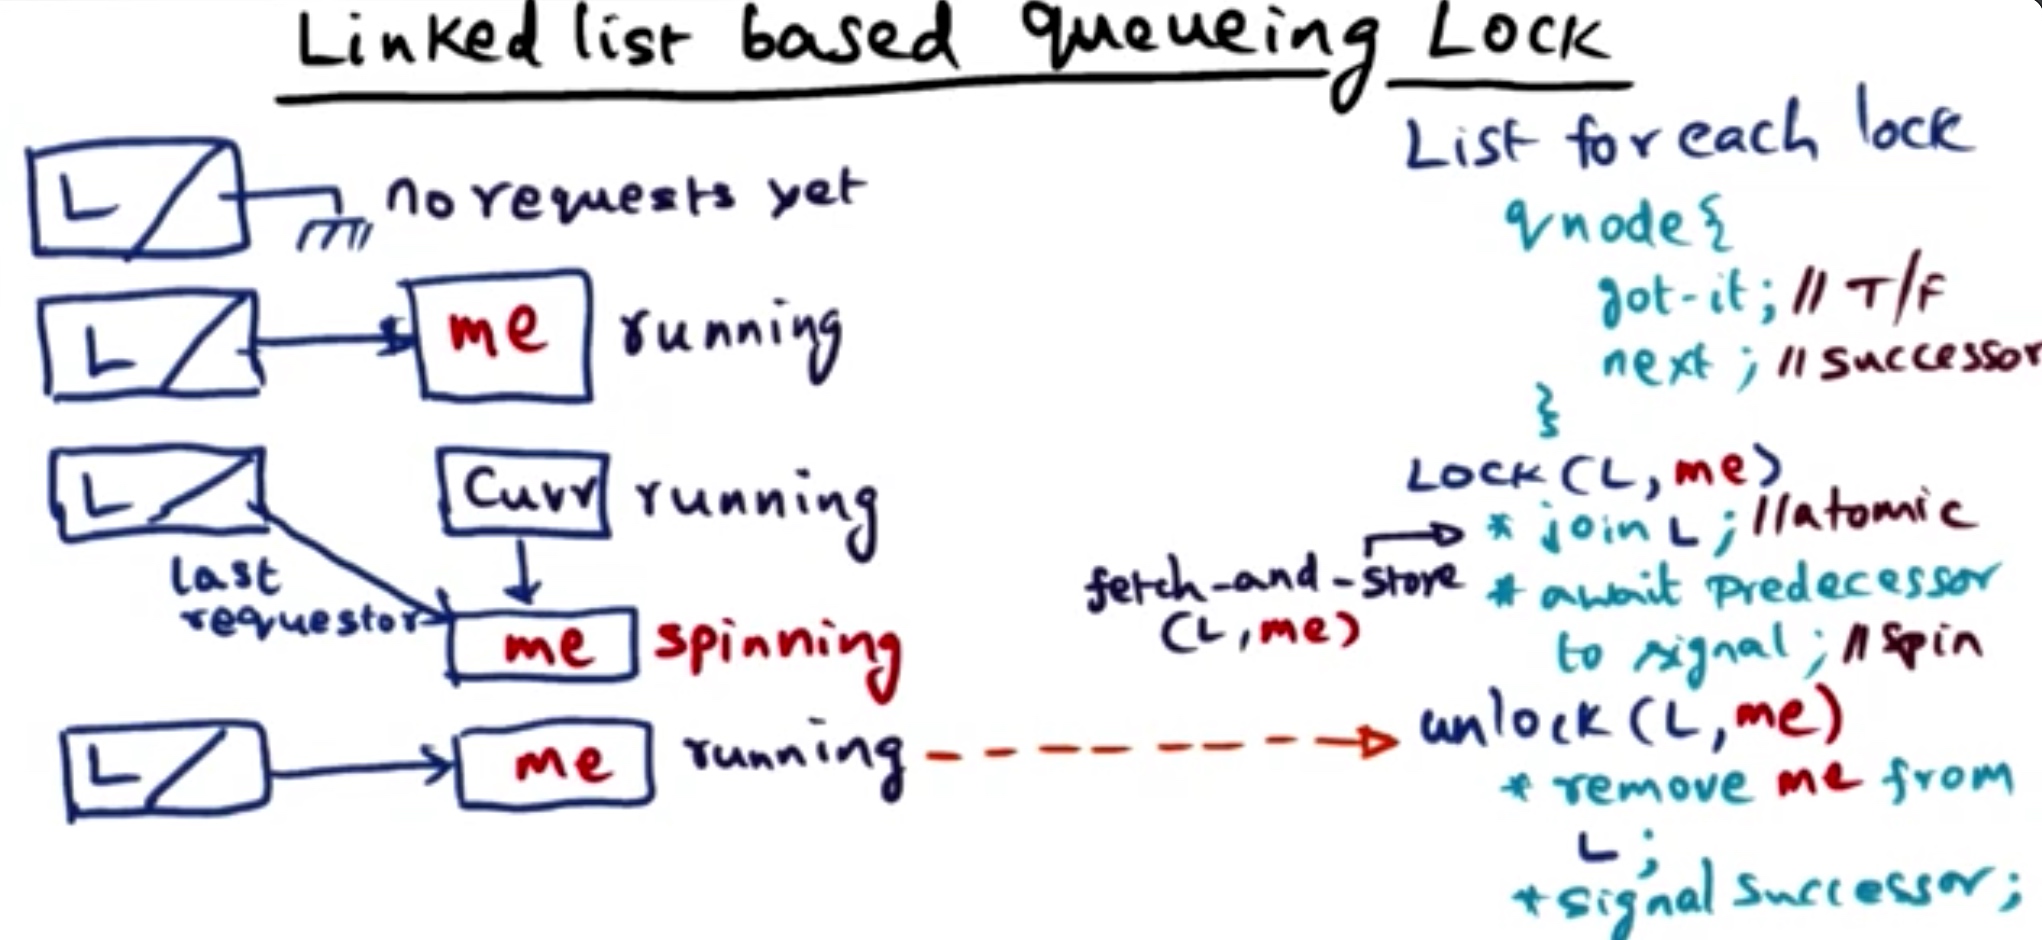 Linked list based queueing Lock
L no requests yet
L me running
L Curr running
last
requestor me spinning
L me running
List for each lock
qnode{
got-it; // T/F
next ; // successor
}
Lock (L, me)
* join L ; //atomic
fetch-and-store
(L, me)
* await predecessor
to signal ; // spin
unlock (L, me)
* remove me from
L ;
* signal successor ;